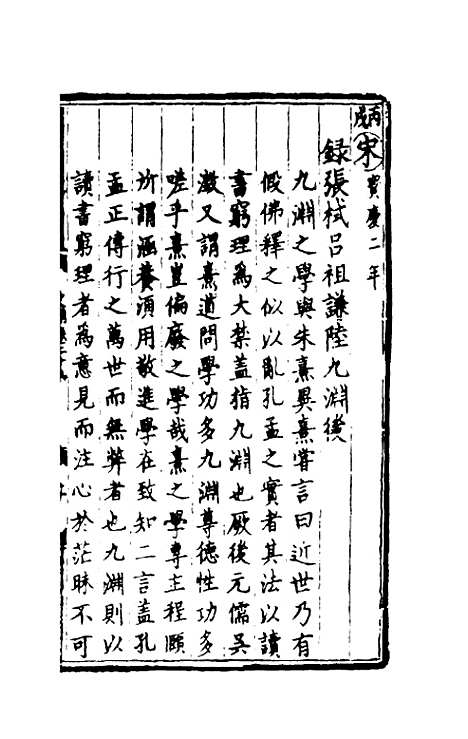 丙戌
宋寳慶二年
録張栻呂祖謙陸九淵後
九淵之學與朱熹異熹嘗言曰近世乃有
假佛釋之似以亂孔孟之實者其法以讀
書窮理為大禁蓋指九淵也厥後元儒吳
澂又謂熹道問學功多九淵尊德性功多
嗟乎熹豈偏廢之學哉熹之學專主程頤
所謂涵養須用敬進學在致知二言蓋孔
孟正傳行之萬世而無弊者也九淵則以
讀書窮理者為意見而注心於茫昧不可